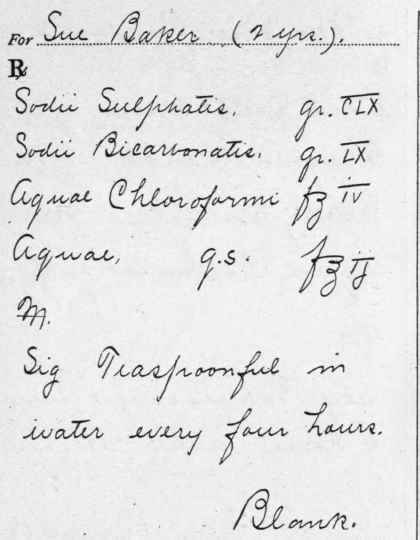 For Sue Baker (2 yrs.).
℞
Sodii Sulphatis, gr. CLX
Sodii Bicarbonatis, gr. LX
Aquae Chloroformi fʒ iv
Aquae, q.s. f℥ ij
M.
Sig Teaspoonful in
water every four hours.
Blank.